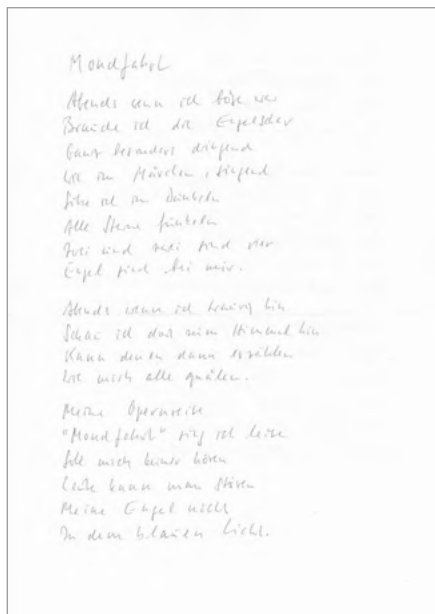 Mondfahrt
Abends wenn ich böse war
Brauche ich die Engelschar
Ganz besonders dringend
Wie im Märchen, singend
Sitz ich im Dunkeln
Alle Sterne funkeln
Zwei und zwei sind vier
Engel sind bei mir.
Abends wenn ich traurig bin
Schau ich dort zum Himmel hin
Kann denen dann erzählen
Wie mich alle quälen.
Meine Opernreise
"Mondfahrt" sing ich leise
Soll mich keiner hören
Leider kann man stören
Meine Engel nicht
In dem blauen Licht.